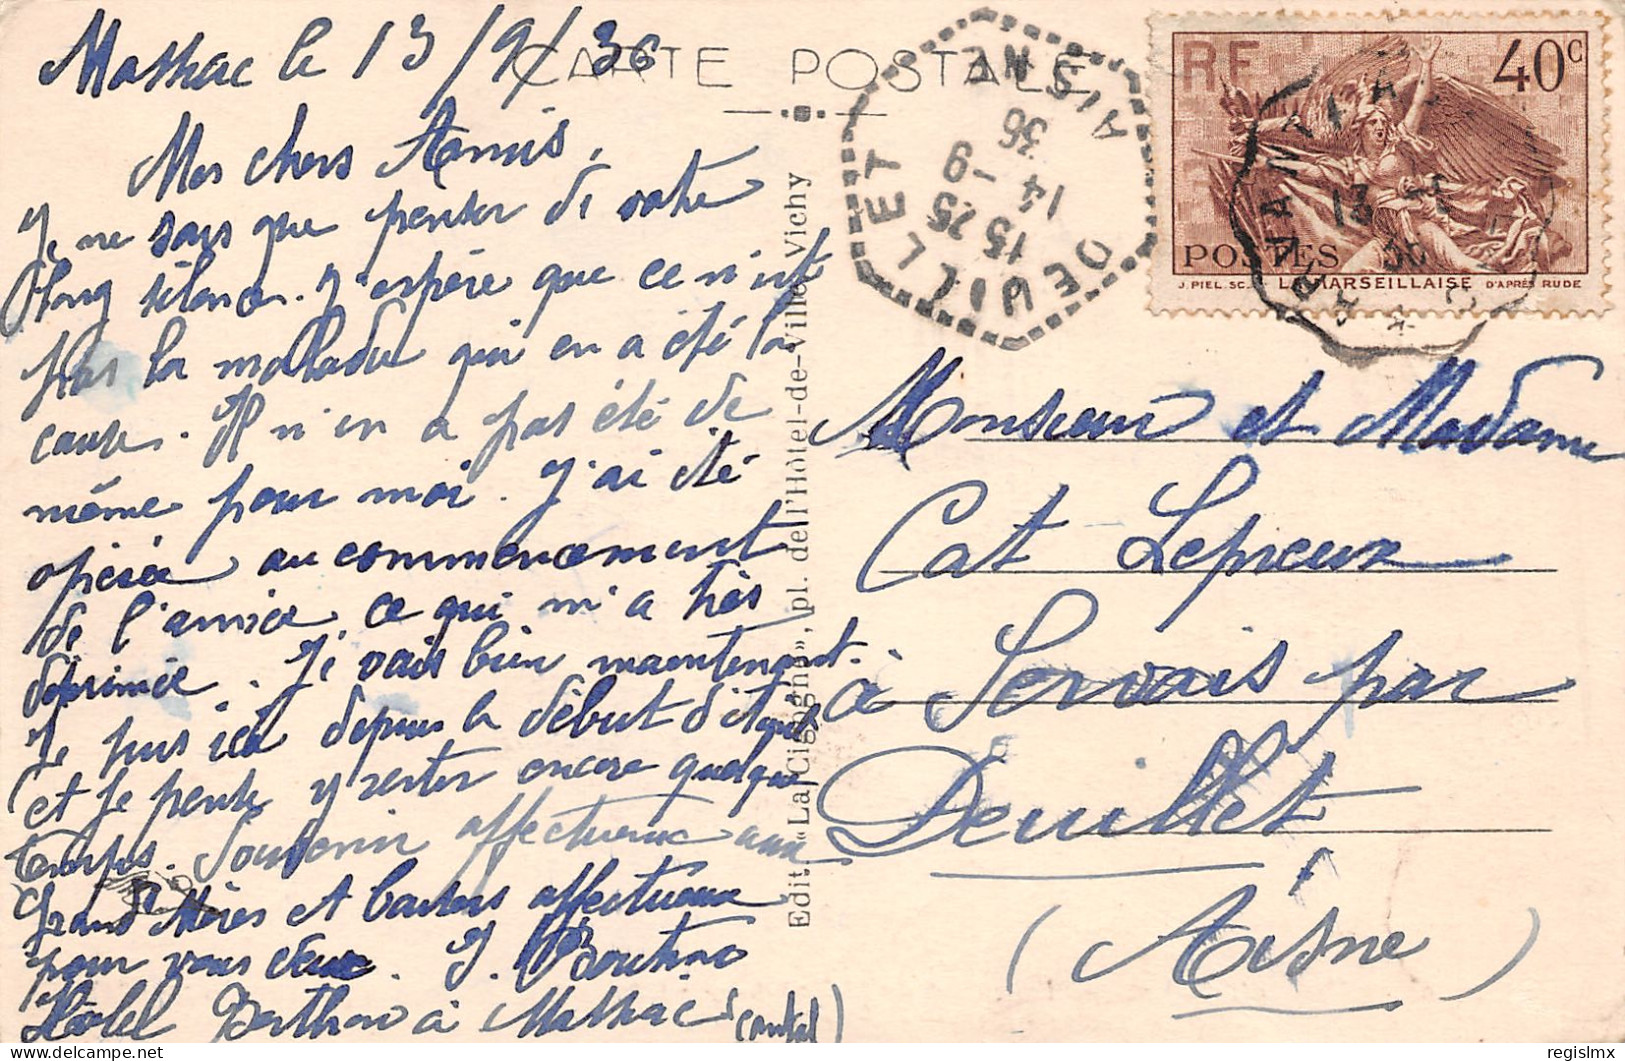 Massiac le 13/9/36
CARTE POSTALE
Mes chers Amis,
Je ne sais que penser de votre
long silence. J'espère que ce n'est
pas la maladie qui en a été la
cause. Il n'en a pas été de
même pour moi. J'ai été
opérée au commencement
de l'année ce qui m'a très
déprimée. Je vais bien maintenant.
Je suis ici depuis le début d'
et je pense y rester encore quelque
temps. Souvenir affectueux aux
Grand Mères et baisers affectueux
pour vous deux. J.
Hôtel à Massiac (Cantal)
Edit. "La Cigogne", pl. de l'Hôtel-de-Ville, Vichy
DEUILLET
AISNE
15 25
14 -9
36
RF
40c
POSTES
J. PIEL. SC.
LA MARSEILLAISE
D'APRÈS RUDE
13
36
Monsieur et Madame
Cat Lepreux
à Servais par
Deuillet
(Aisne)
regislmx